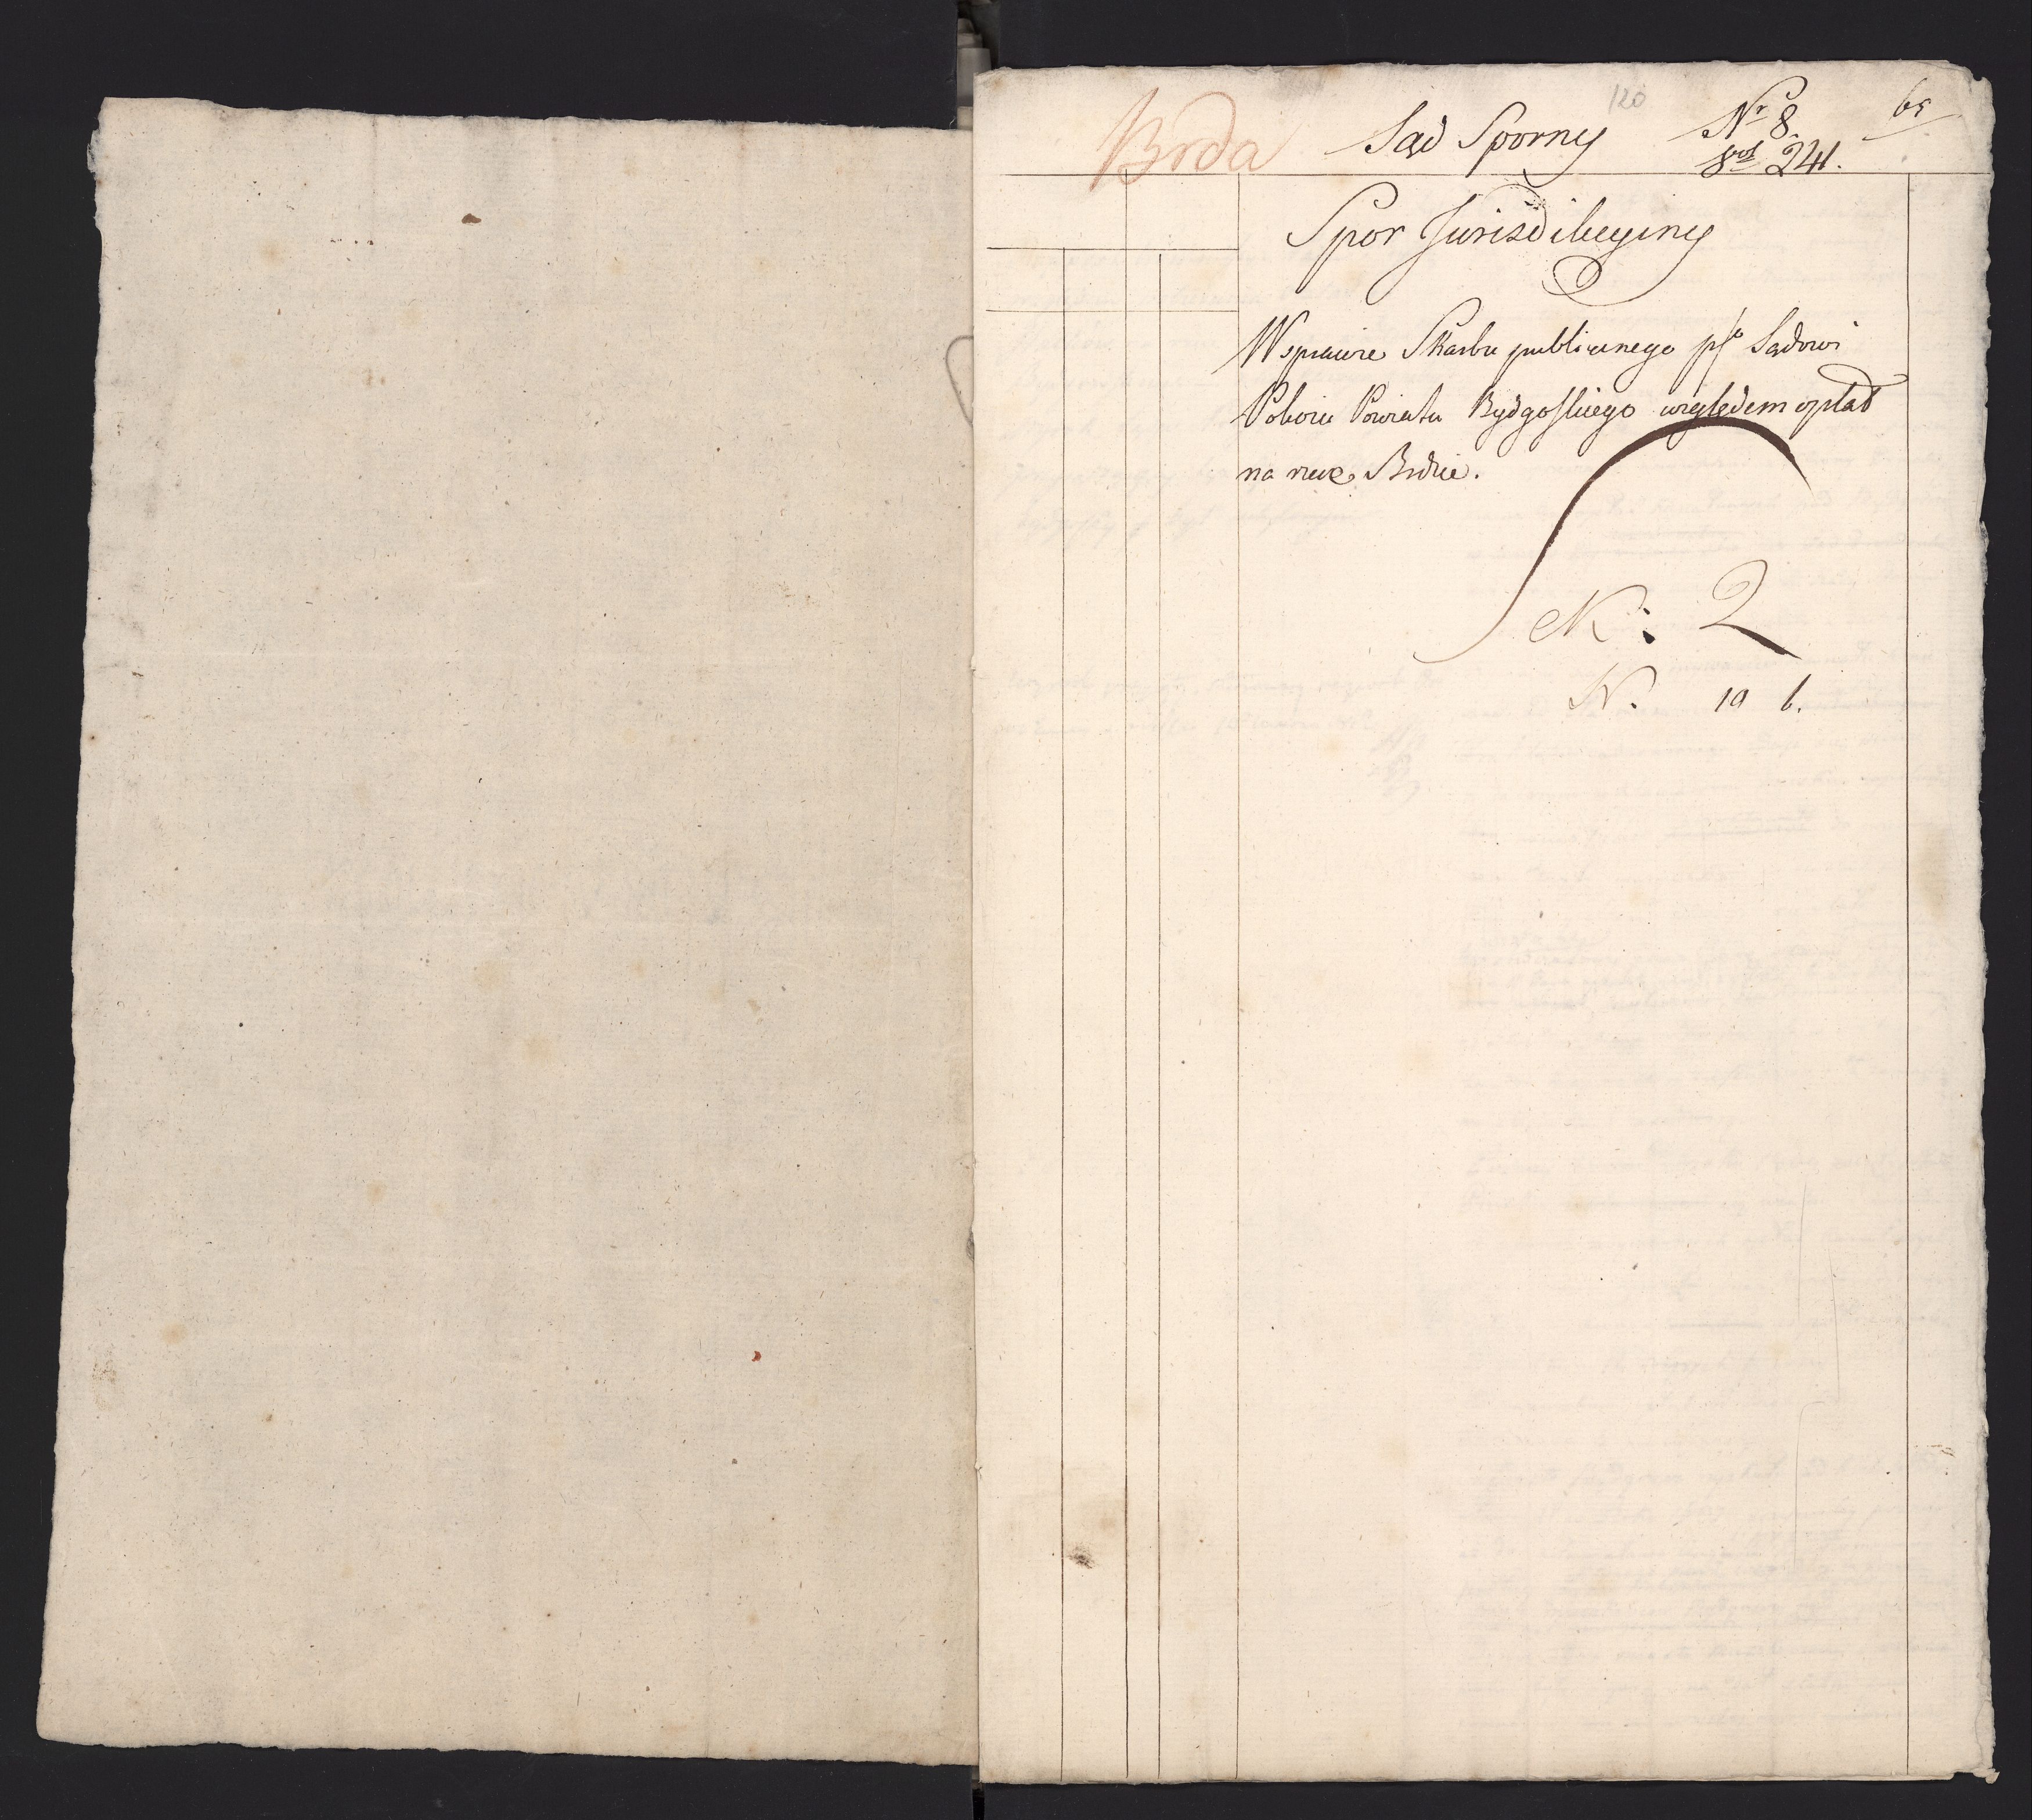 120
Brda Sąd Sporny Nr 8 65
vol 241.
Spor Jurisdikcyiny
W sprawie Skarbu publicznego pko Sądowi
Pokoiu Powiatu Bydgoskiego względem opłat
na rzece Brdzie.
N: 2
N. 19 b.